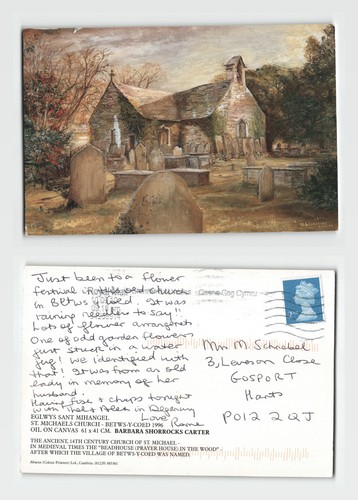 Just been to a flower
festival in this old church
in Betws y Coed. It was
raining needles to say!!
Lots of flower arrangements
One of odd garden flowers
just stuck in a water
jug! We identified with
that! It was from an old
lady in memory of her
husband.
Having fish & chips tonight
with Thel & Alex in Deganwy
Love
EGLWYS SANT MIHANGEL
ST. MICHAELS CHURCH - BETWS-Y-COED 1996
OIL ON CANVAS 61 x 41 CM. BARBARA SHORROCKS CARTER
THE ANCIENT, 14TH CENTURY CHURCH OF ST. MICHAEL -
IN MEDIEVAL TIMES THE "BEADHOUSE (PRAYER HOUSE) IN THE WOOD" -
AFTER WHICH THE VILLAGE OF BETWS-Y-COED WAS NAMED.
Gogledd Cymru
Mrs M. Schnabel
3, Leveson Close
GOSPORT
Hants
PO12 2QJ